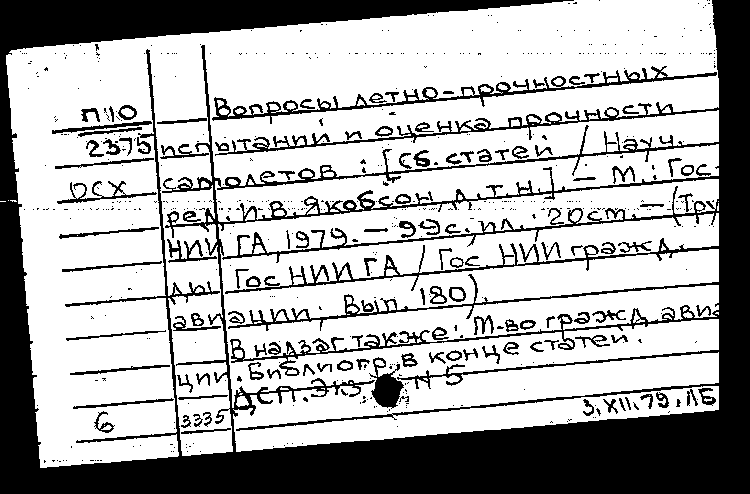 П110 Вопросы летно-прочностных
2375 испытаний и оценка прочности
ОСХ самолетов : [Сб. статей / Науч.
ред. И.В. Якобсон, д.т.н.]. — М.: Гос-
НИИ ГА, 1979. — 99с., ил.; 20см. — (Тру
ды Гос НИИ ГА / Гос. НИИ гражд.
авиации; Вып. 180).
В надзаг. также: М-во гражд. авиа
ции. Библиогр. в конце статей.
ДСП. Экз. N 5
6 3335 3.XII.79. ЛБ